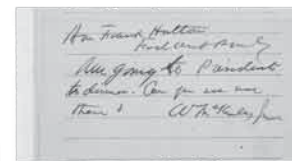 Hon Frank Hatton
Am going to President
to dinner. Can you see me
there? W McKinley Jr